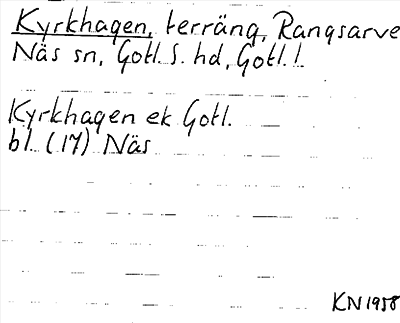 Kyrkhagen, terräng, Rangsarve
Näs sn, Gotl. S. hd, Gotl. l.
Kyrkhagen ek Gotl.
bl. (17) Näs
KN 1958